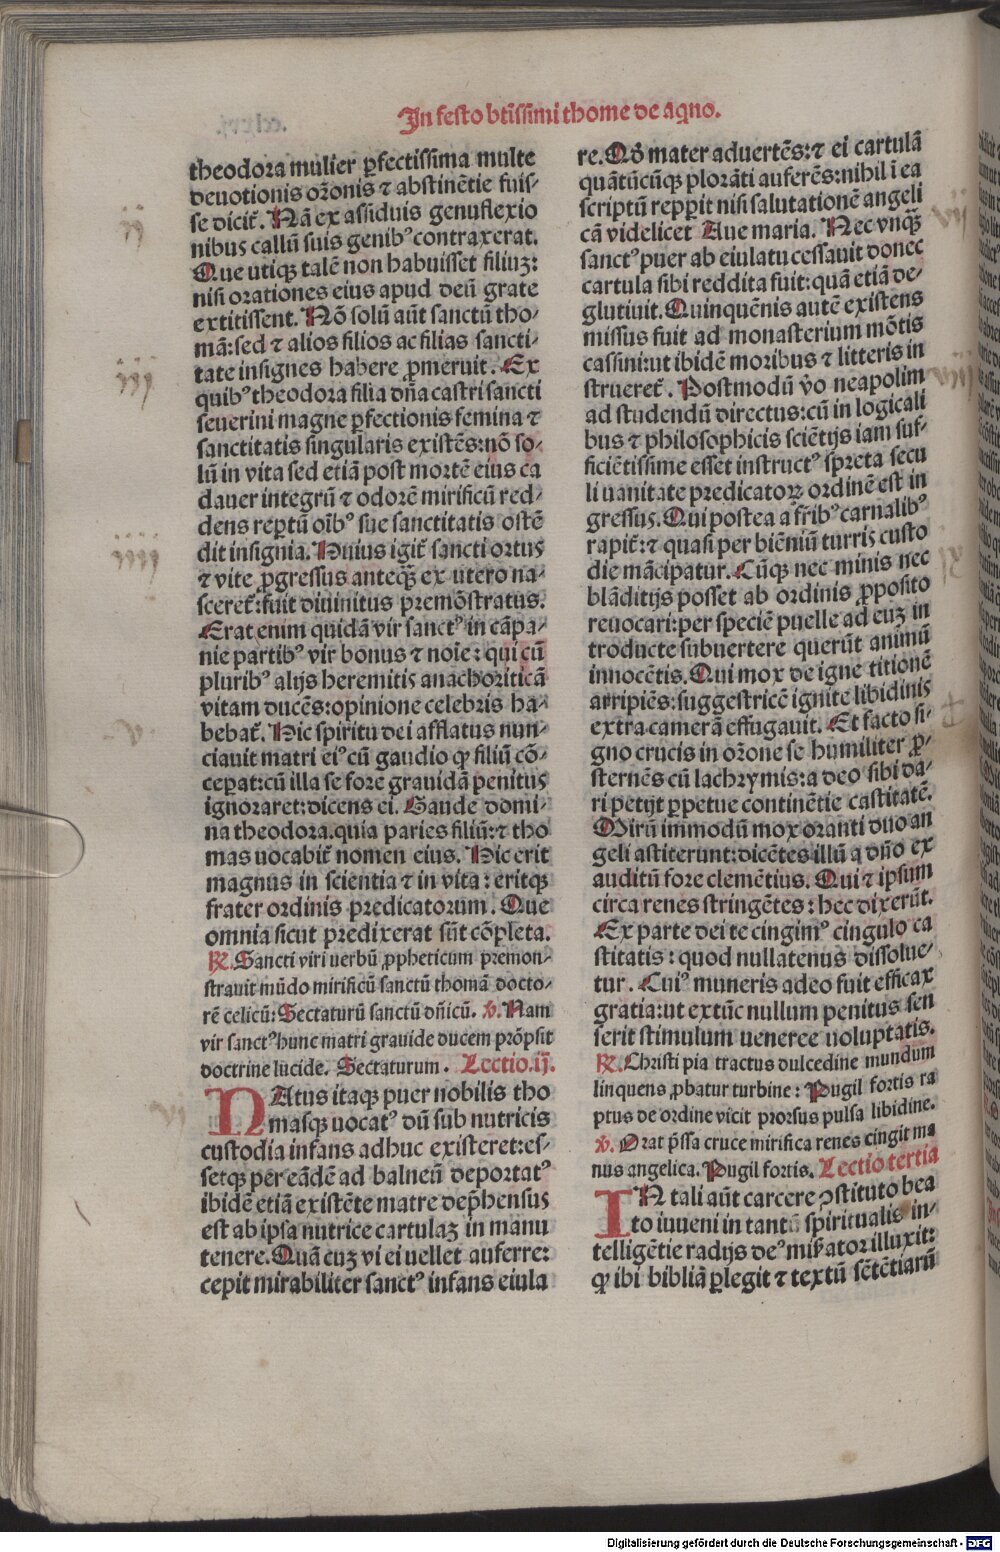 In festo btissimi thome de aq̄no.
theodora mulier ꝑfectissima multe
deuotionis or̃onis ⁊ abstinẽtie fuis-
se dicit̃. Nã ex assiduis genuflexio
nibus callũ suis genibꝰ contraxerat.
Que utiqꝫ talẽ non habuisset filiuꝫ:
nisi orationes eius apud deũ grate
extitissent. Nõ solũ aũt sanctũ tho-
mã: sed ⁊ alios filios ac filias sancti-
tate insignes habere ꝓmeruit. Ex
quibꝰ theodora filia dña castri sancti
seuerini magne ꝑfectionis femina ⁊
sanctitatis singularis existẽs: nõ so-
lũ in vita sed etiã post mortẽ eius ca
dauer integrũ ⁊ odorẽ mirificũ red-
dens reꝑtũ oĩbꝰ sue sanctitatis ostẽ
dit insignia. Huius igit̃ sancti ortus
⁊ vite ꝓgressus anteqꝫ̃ ex utero na-
sceret̃: fuit diuinitus premõstratus.
Erat enim quidã vir sanctꝰ in cãpa-
nie partibꝰ vir bonus ⁊ noĩe: qui cũ
pluribꝰ alijs heremitis anachoriticã
vitam ducẽs: opinione celebris ha-
bebat̃. Hic spiritu dei afflatus nun-
ciauit matri eiꝰ cũ gaudio ꝙ filiũ cõ-
ceꝑat: cũ illa se fore grauidã penitus
ignoraret: dicens ei. Gaude domi-
na theodora. quia paries filiũ: ⁊ tho
mas uocabit̃ nomen eius. Hic erit
magnus in scientia ⁊ in vita: eritqꝫ
frater ordinis predicatorum. Que
omnia sicut predixerat sũt cõpleta.
℟. Sancti viri uerbũ ꝓpheticum premon-
strauit mũdo mirificũ sanctũ thomã docto-
rẽ celicũ: Sectaturũ sanctũ dñicũ. ℣. Nam
vir sanctꝰ hunc matri grauide ducem prõpsit
doctrine lucide. Sectaturum. Lectio.ij.
NAtus itaqꝫ puer nobilis tho
masqꝫ uocatꝰ dũ sub nutricis
custodia infans adhuc existeret: es-
setqꝫ per eãdẽ ad balneũ deportatꝰ
ibidẽ etiã existẽte matre dep̃hensus
est ab ipsa nutrice cartulaꝫ in manu
tenere. Quã cuꝫ vi ei uellet auferre:
cepit mirabiliter sanctꝰ infans eiula
re. Qđ mater aduertẽs: ⁊ ei cartulã
quãtũcũqꝫ plorãti auferẽs: nihil ĩ ea
scriptũ reꝑit nisi salutationẽ angeli
cã videlicet Aue maria. Nec vnqꝫ̃
sanctꝰ puer ab eiulatu cessauit donec
cartula sibi reddita fuit: quã etiã de-
glutiuit. Quinquẽnis autẽ existens
missus fuit ad monasterium mõtis
cassini: ut ibidẽ moribus ⁊ litteris in
strueret̃. Postmodũ ṽo neapolim
ad studendũ directus: cũ in logicali
bus ⁊ philosophicis sciẽtijs iam suf-
ficiẽtissime esset instructꝰ spreta secu
li uanitate predicatoꝝ ordinẽ est in
gressus. Qui postea a fr̃ibꝰ carnalibꝰ
rapit̃: ⁊ quasi per biẽniũ turris custo
die mãcipatur. Cũqꝫ nec minis nec
blãditijs posset ab ordinis ꝓposito
reuocari: per speciẽ puelle ad euꝫ in
troducte subuertere querũt animũ
innocẽtis. Qui mox de igne titionẽ
arripiẽs: suggestricẽ ignite libidinis
extra camerã effugauit. Et facto si-
gno crucis in or̃one se humiliter ꝓ-
sternẽs cũ lachrymis: a deo sibi da-
ri petijt ꝑpetue continẽtie castitatẽ.
Mirũ immodũ mox oranti duo an
geli astiterunt: dicẽtes illũ a dño ex
auditũ fore clemẽtius. Qui ⁊ ipsum
circa renes stringẽtes: hec dixerũt.
Ex parte dei te cingimꝰ cingulo ca
stitatis: quod nullatenus dissolue-
tur. Cuiꝰ muneris adeo fuit efficax
gratia: ut extũc nullum penitus sen
serit stimulum uenereę uoluptatis.
℟. Christi pia tractus dulcedine mundum
linquens ꝓbatur turbine: Pugil fortis ra
ptus de ordine vicit prorsus pulsa libidine.
℣. Orat p̃ssa cruce mirifica renes cingit ma
nus angelica. Pugil fortis. Lectio tertia
IN tali aũt carcere ꝯstituto bea
to iuueni in tantũ spiritualis in-
telligẽtie radijs deꝰ mis̃atorilluxit:
ꝙ ibi bibliã ꝑlegit ⁊ textũ sẽtẽtiarũ
ij
iij
iiij
v
vi
Digitalisierung gefördert durch die Deutsche Forschungsgemeinschaft - DFG